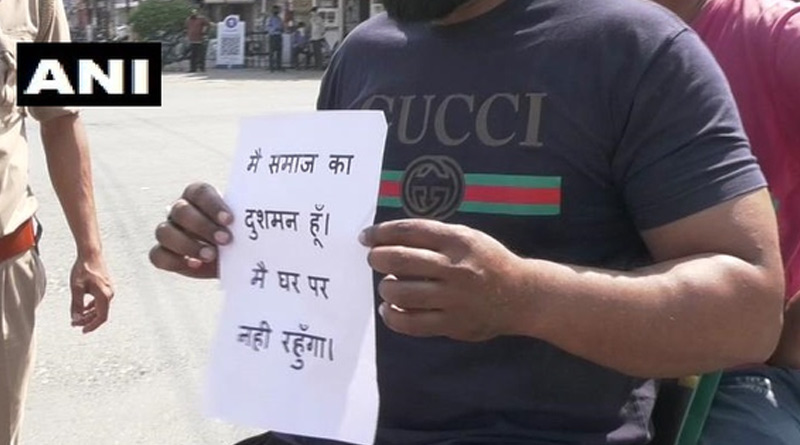 ANI
GUCCI
मै समाज का
दुशमन हूँ।
मै घर पर
नही रहुँगा।